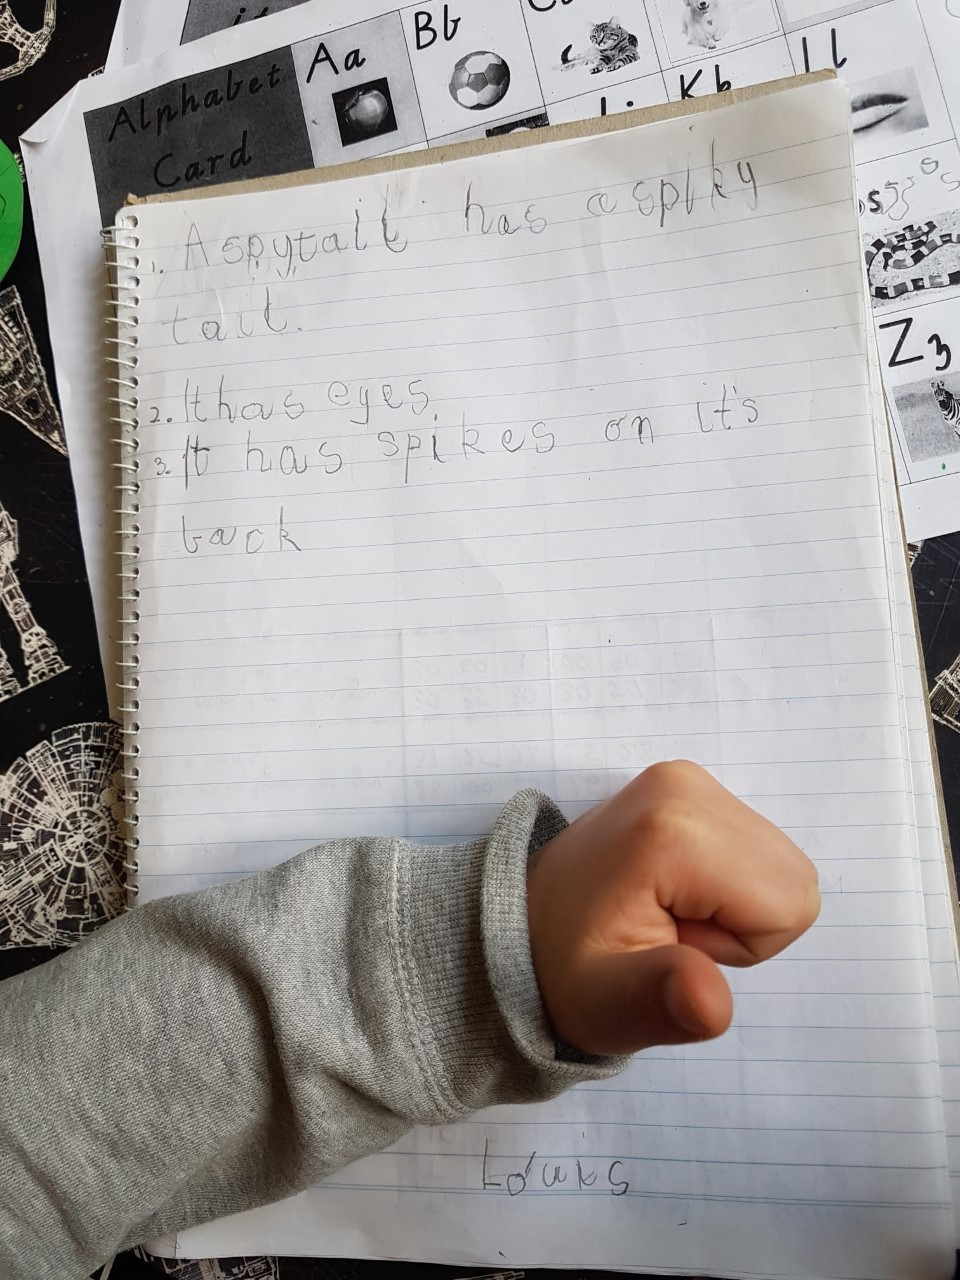 Aa
Bb
Alphabet
Card
Kk
Ll
1. A spytail has a spiky
tail.
2. It has eyes.
3. It has spikes on it's
back
Zz
Louks